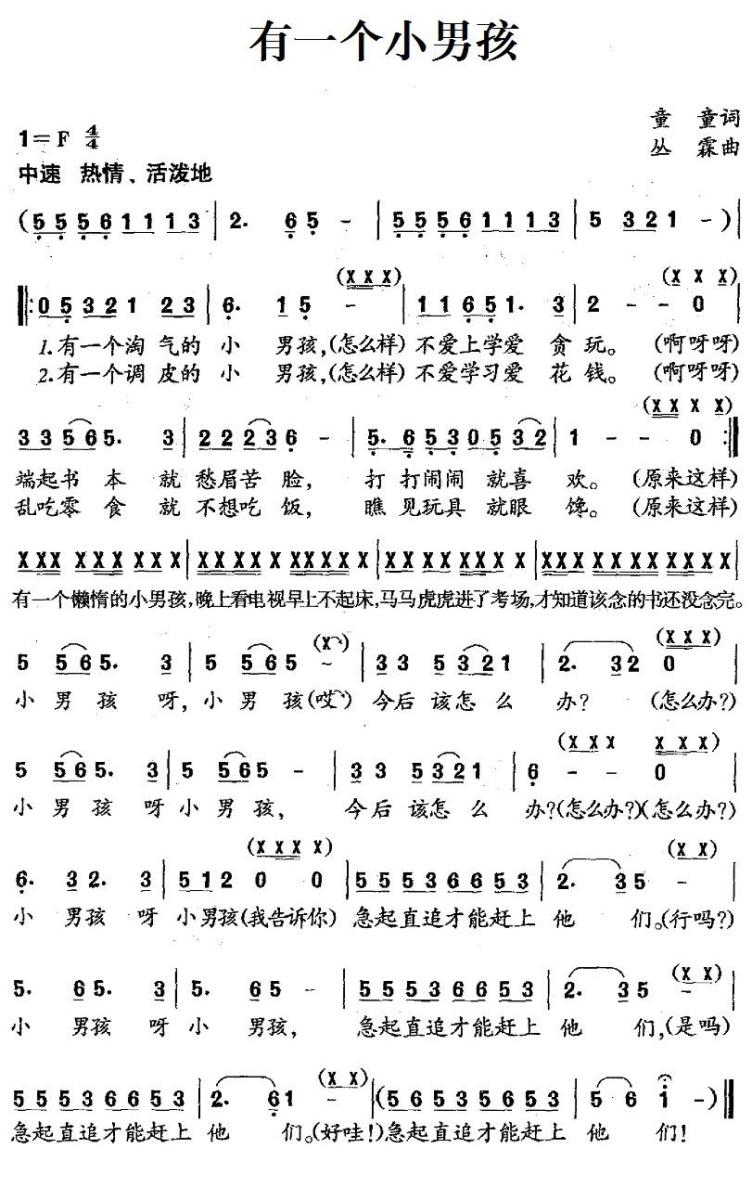 有一个小男孩
童 童词
1=F 4/4
丛 霖曲
中速 热情、活泼地
(5 5 5 6 1 1 1 3 | 2. 6 5 - | 5 5 5 6 1 1 1 3 | 5 3 2 1 - ) |
(X X X) (X X X)
‖: 0 5 3 2 1 2 3 | 6. 1 5 - | 1 1 6 5 1. 3 | 2 - - 0 |
1.有一个淘 气的 小 男孩,(怎么样) 不爱上学爱 贪 玩。 (啊呀呀)
2.有一个调 皮的 小 男孩,(怎么样) 不爱学习爱 花 钱。 (啊呀呀)
(X X X X)
3 3 5 6 5. 3 | 2 2 2 3 6 - | 5. 6 5 3 0 5 3 2 | 1 - - 0 :‖
端起书 本 就 愁眉苦 脸, 打 打闹闹 就喜 欢。 (原来这样)
乱吃零 食 就 不想吃 饭, 瞧 见玩具 就眼 馋。 (原来这样)
X X X X X X X X X X | X X X X X X X X X X X | X X X X X X X X X X | X X X X X X X X X X X X
有一个懒惰的小男孩,晚上看电视早上不起床,马马虎虎进了考场,才知道该念的书还没念完。
(X) (X X X)
5 5 6 5. 3 | 5 5 6 5 - | 3 3 5 3 2 1 | 2. 3 2 0 |
小 男 孩 呀, 小 男 孩(哎) 今后 该怎 么 办? (怎么办?)
(X X X X X X)
5 5 6 5. 3 | 5 5 6 5 - | 3 3 5 3 2 1 | 6 - - 0 |
小 男 孩 呀 小 男 孩, 今后 该怎 么 办?(怎么办?)(怎么办?)
(X X X X) (X X)
6. 3 2. 3 | 5 1 2 0 0 | 5 5 5 3 6 6 5 3 | 2. 3 5 - |
小 男孩 呀 小男孩(我告诉你) 急起直追才能赶上 他 们。(行吗?)
(X X)
5. 6 5. 3 | 5. 6 5 - | 5 5 5 3 6 6 5 3 | 2. 3 5 - |
小 男孩 呀 小 男孩, 急起直追才能赶上 他 们,(是吗)
(X X)
5 5 5 3 6 6 5 3 | 2. 6 1 - | (6 5 5 3 5 6 5 3 | 5 6 1 - ) ‖
急起直追才能赶上 他 们。(好哇!)急起直追才能赶上 他 们!